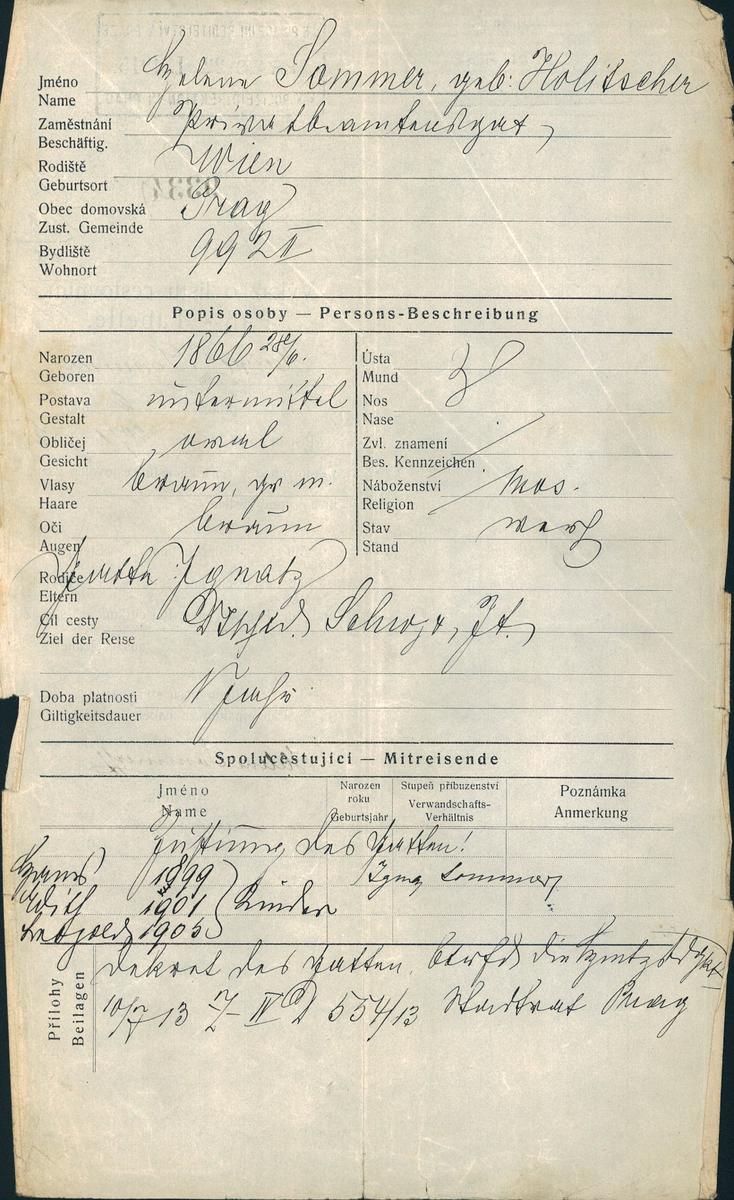 Jméno Helene Sommer, geb: Holitscher
Name
Zaměstnání Privatbeamtensgat
Beschäftig.
Rodiště Wien
Geburtsort
Obec domovská Prag
Zust. Gemeinde
Bydliště 992 II
Wohnort
Popis osoby — Persons-Beschreibung
Narozen 1866 28/6.
Geboren
Postava untermittel
Gestalt
Obličej oval
Gesicht
Vlasy braun, gr m.
Haare
Oči braun
Augen
Ústa
Mund
Nos
Nase
Zvl. znamení
Bes. Kennzeichen
Náboženství mos.
Religion
Stav verh
Stand
Rodiče Ignatz
Eltern
Cíl cesty Dtschld. Schweiz, It.
Ziel der Reise
Doba platnosti 1 Jahr
Giltigkeitsdauer
Spolucestující — Mitreisende
Jméno Name
Narozen roku Geburtsjahr
Stupeň příbuzenství Verwandschafts-Verhältnis
Poznámka Anmerkung
Zustimg des Gatten!
Hans 1899 Ignaz Sommer
Edith 1901 Kinder
Leopold 1905
Přílohy Beilagen
Dekret des Gatten,
10/7 13 IV 554/13 Stadtrat Prag